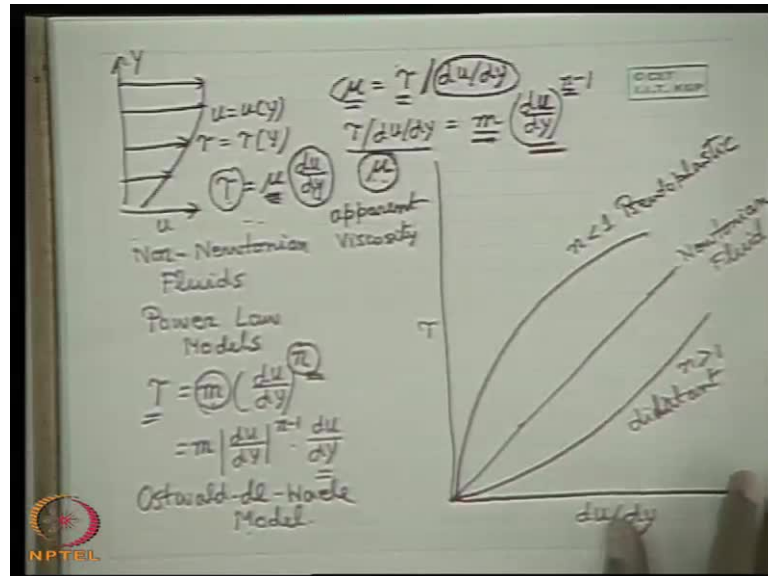 Y
u = u(y)
τ = τ(y)
u
τ = μ (du/dy)
Non-Newtonian
Fluids
Power Law
Models
τ = m (du/dy)^n
= m |du/dy|^n-1 · du/dy
Ostwald-de-Waele
Model.
μ = τ / du/dy
τ/du/dy = m (du/dy)^n-1
μ
apparent
Viscosity
© CET
I.I.T. KGP
τ
n<1 Pseudoplastic
Newtonian
Fluid
n>1
dilatant
du/dy
NPTEL